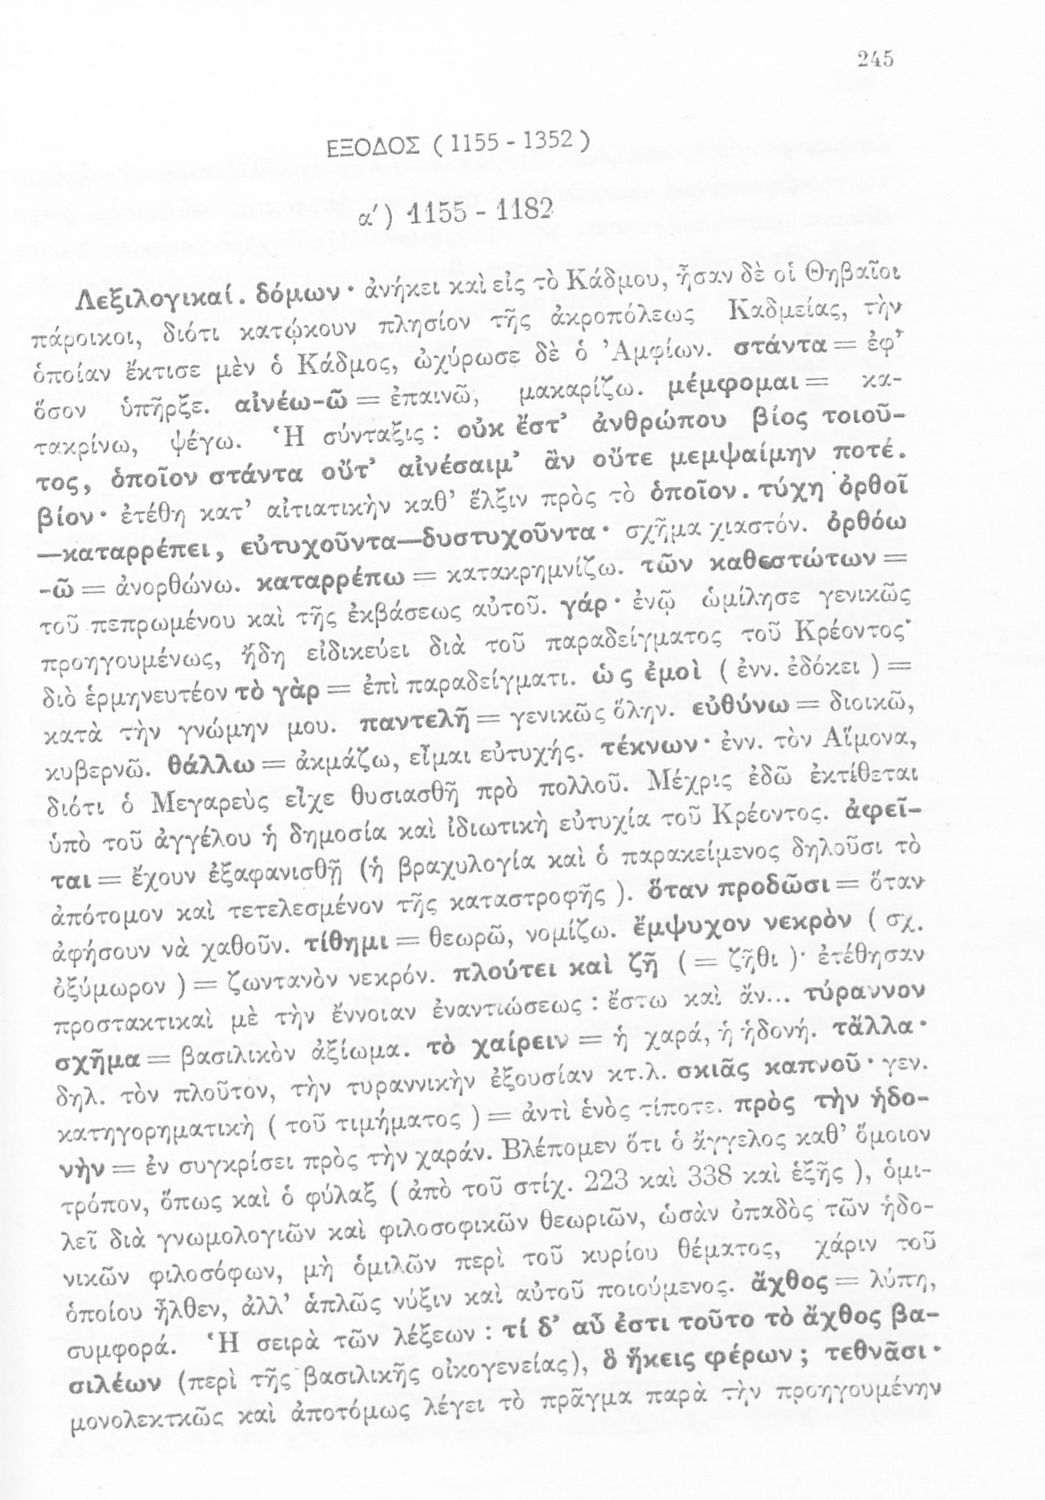 245
ΕΞΟΔΟΣ ( 1155 - 1352 )
α΄) 1155 - 1182
Λεξιλογικαί. δόμων· ἀνήκει καὶ εἰς τὸ Κάδμου, ἦσαν δὲ οἱ Θηβαῖοι
πάροικοι, διότι κατῴκουν πλησίον τῆς ἀκροπόλεως Καδμείας, τὴν
ὁποίαν ἔκτισε μὲν ὁ Κάδμος, ὠχύρωσε δὲ ὁ Ἀμφίων. στάντα = ἐφ’
ὅσον ὑπῆρξε. αἰνέω-ῶ = ἐπαινῶ, μακαρίζω. μέμφομαι = κα-
τακρίνω, ψέγω. Ἡ σύνταξις : οὐκ ἔστ’ ἀνθρώπου βίος τοιοῦ-
τος, ὁποῖον στάντα οὔτ’ αἰνέσαιμ’ ἂν οὔτε μεμψαίμην ποτέ.
βίον· ἐτέθη κατ’ αἰτιατικὴν καθ’ ἕλξιν πρὸς τὸ ὁποῖον. τύχη ὀρθοῖ
—καταρρέπει, εὐτυχοῦντα—δυστυχοῦντα· σχῆμα χιαστόν. ὀρθόω
-ῶ = ἀνορθώνω. καταρρέπω = κατακρημνίζω. τῶν καθεστώτων =
τοῦ πεπρωμένου καὶ τῆς ἐκβάσεως αὐτοῦ. γάρ· ἐνῷ ὡμίλησε γενικῶς
προηγουμένως, ἤδη εἰδικεύει διὰ τοῦ παραδείγματος τοῦ Κρέοντος·
διὸ ἑρμηνευτέον τὸ γὰρ = ἐπὶ παραδείγματι. ὡς ἐμοὶ ( ἐνν. ἐδόκει ) =
κατὰ τὴν γνώμην μου. παντελῆ = γενικῶς ὅλην. εὐθύνω = διοικῶ,
κυβερνῶ. θάλλω = ἀκμάζω, εἶμαι εὐτυχής. τέκνων· ἐνν. τὸν Αἵμονα,
διότι ὁ Μεγαρεὺς εἶχε θυσιασθῆ πρὸ πολλοῦ. Μέχρις ἐδῶ ἐκτίθεται
ὑπὸ τοῦ ἀγγέλου ἡ δημοσία καὶ ἰδιωτικὴ εὐτυχία τοῦ Κρέοντος. ἀφεῖ-
ται = ἔχουν ἐξαφανισθῆ (ἡ βραχυλογία καὶ ὁ παρακείμενος δηλοῦσι τὸ
ἀπότομον καὶ τετελεσμένον τῆς καταστροφῆς ). ὅταν προδῶσι = ὅταν
ἀφήσουν νὰ χαθοῦν. τίθημι = θεωρῶ, νομίζω. ἔμψυχον νεκρὸν ( σχ.
ὀξύμωρον ) = ζωντανὸν νεκρόν. πλούτει καὶ ζῆ ( = ζῆθι )· ἐτέθησαν
προστακτικαὶ μὲ τὴν ἔννοιαν ἐναντιώσεως : ἔστω καὶ ἄν... τύραννον
σχῆμα = βασιλικὸν ἀξίωμα. τὸ χαίρειν = ἡ χαρά, ἡ ἡδονή. τἄλλα·
δηλ. τὸν πλοῦτον, τὴν τυραννικὴν ἐξουσίαν κτ.λ. σκιᾶς καπνοῦ· γεν.
κατηγορηματικὴ ( τοῦ τιμήματος ) = ἀντὶ ἑνὸς τίποτε. πρὸς τὴν ἡδο-
νὴν = ἐν συγκρίσει πρὸς τὴν χαράν. Βλέπομεν ὅτι ὁ ἄγγελος καθ’ ὅμοιον
τρόπον, ὅπως καὶ ὁ φύλαξ ( ἀπὸ τοῦ στίχ. 223 καὶ 338 καὶ ἑξῆς ), ὁμι-
λεῖ διὰ γνωμολογιῶν καὶ φιλοσοφικῶν θεωριῶν, ὡσὰν ὀπαδὸς τῶν ἡδο-
νικῶν φιλοσόφων, μὴ ὁμιλῶν περὶ τοῦ κυρίου θέματος, χάριν τοῦ
ὁποίου ἦλθεν, ἀλλ’ ἁπλῶς νύξιν καὶ αὐτοῦ ποιούμενος. ἄχθος = λύπη,
συμφορά. Ἡ σειρὰ τῶν λέξεων : τί δ’ αὖ ἐστι τοῦτο τὸ ἄχθος βα-
σιλέων (περὶ τῆς βασιλικῆς οἰκογενείας), ὃ ἥκεις φέρων ; τεθνᾶσι·
μονολεκτκῶς καὶ ἀποτόμως λέγει τὸ πρᾶγμα παρὰ τὴν προηγουμένην